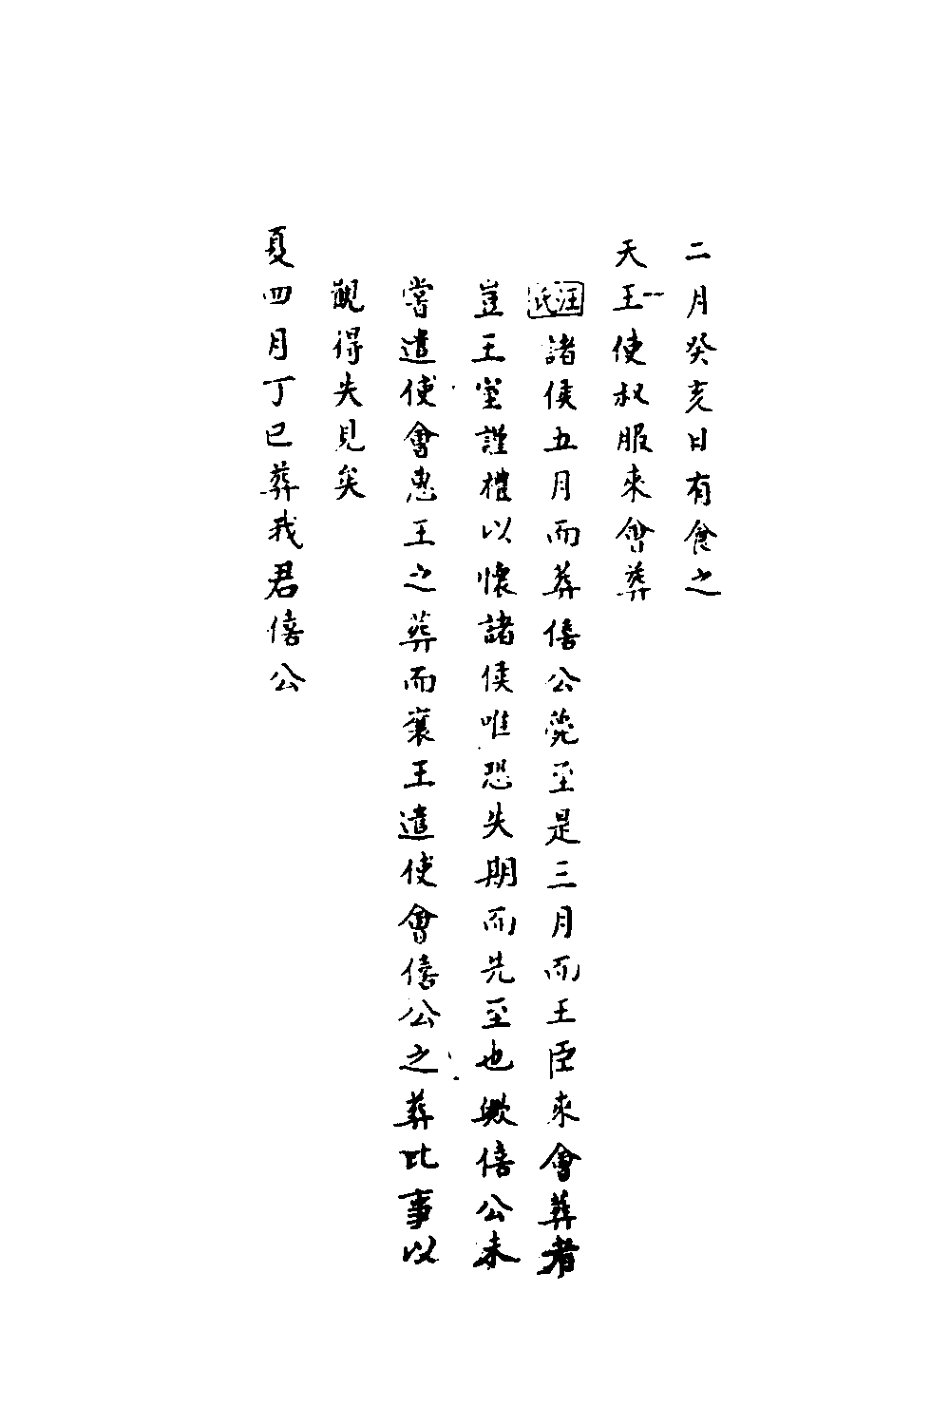 二月癸亥日有食之
天王使叔服來會葬
汪氏諸侯五月而葬僖公薨至是三月而王臣來會葬者
豈王室謹禮以懷諸侯唯恐失期而先至也歟僖公未
嘗遣使會惠王之葬而襄王遣使會僖公之葬比事以
觀得失見矣
夏四月丁巳葬我君僖公